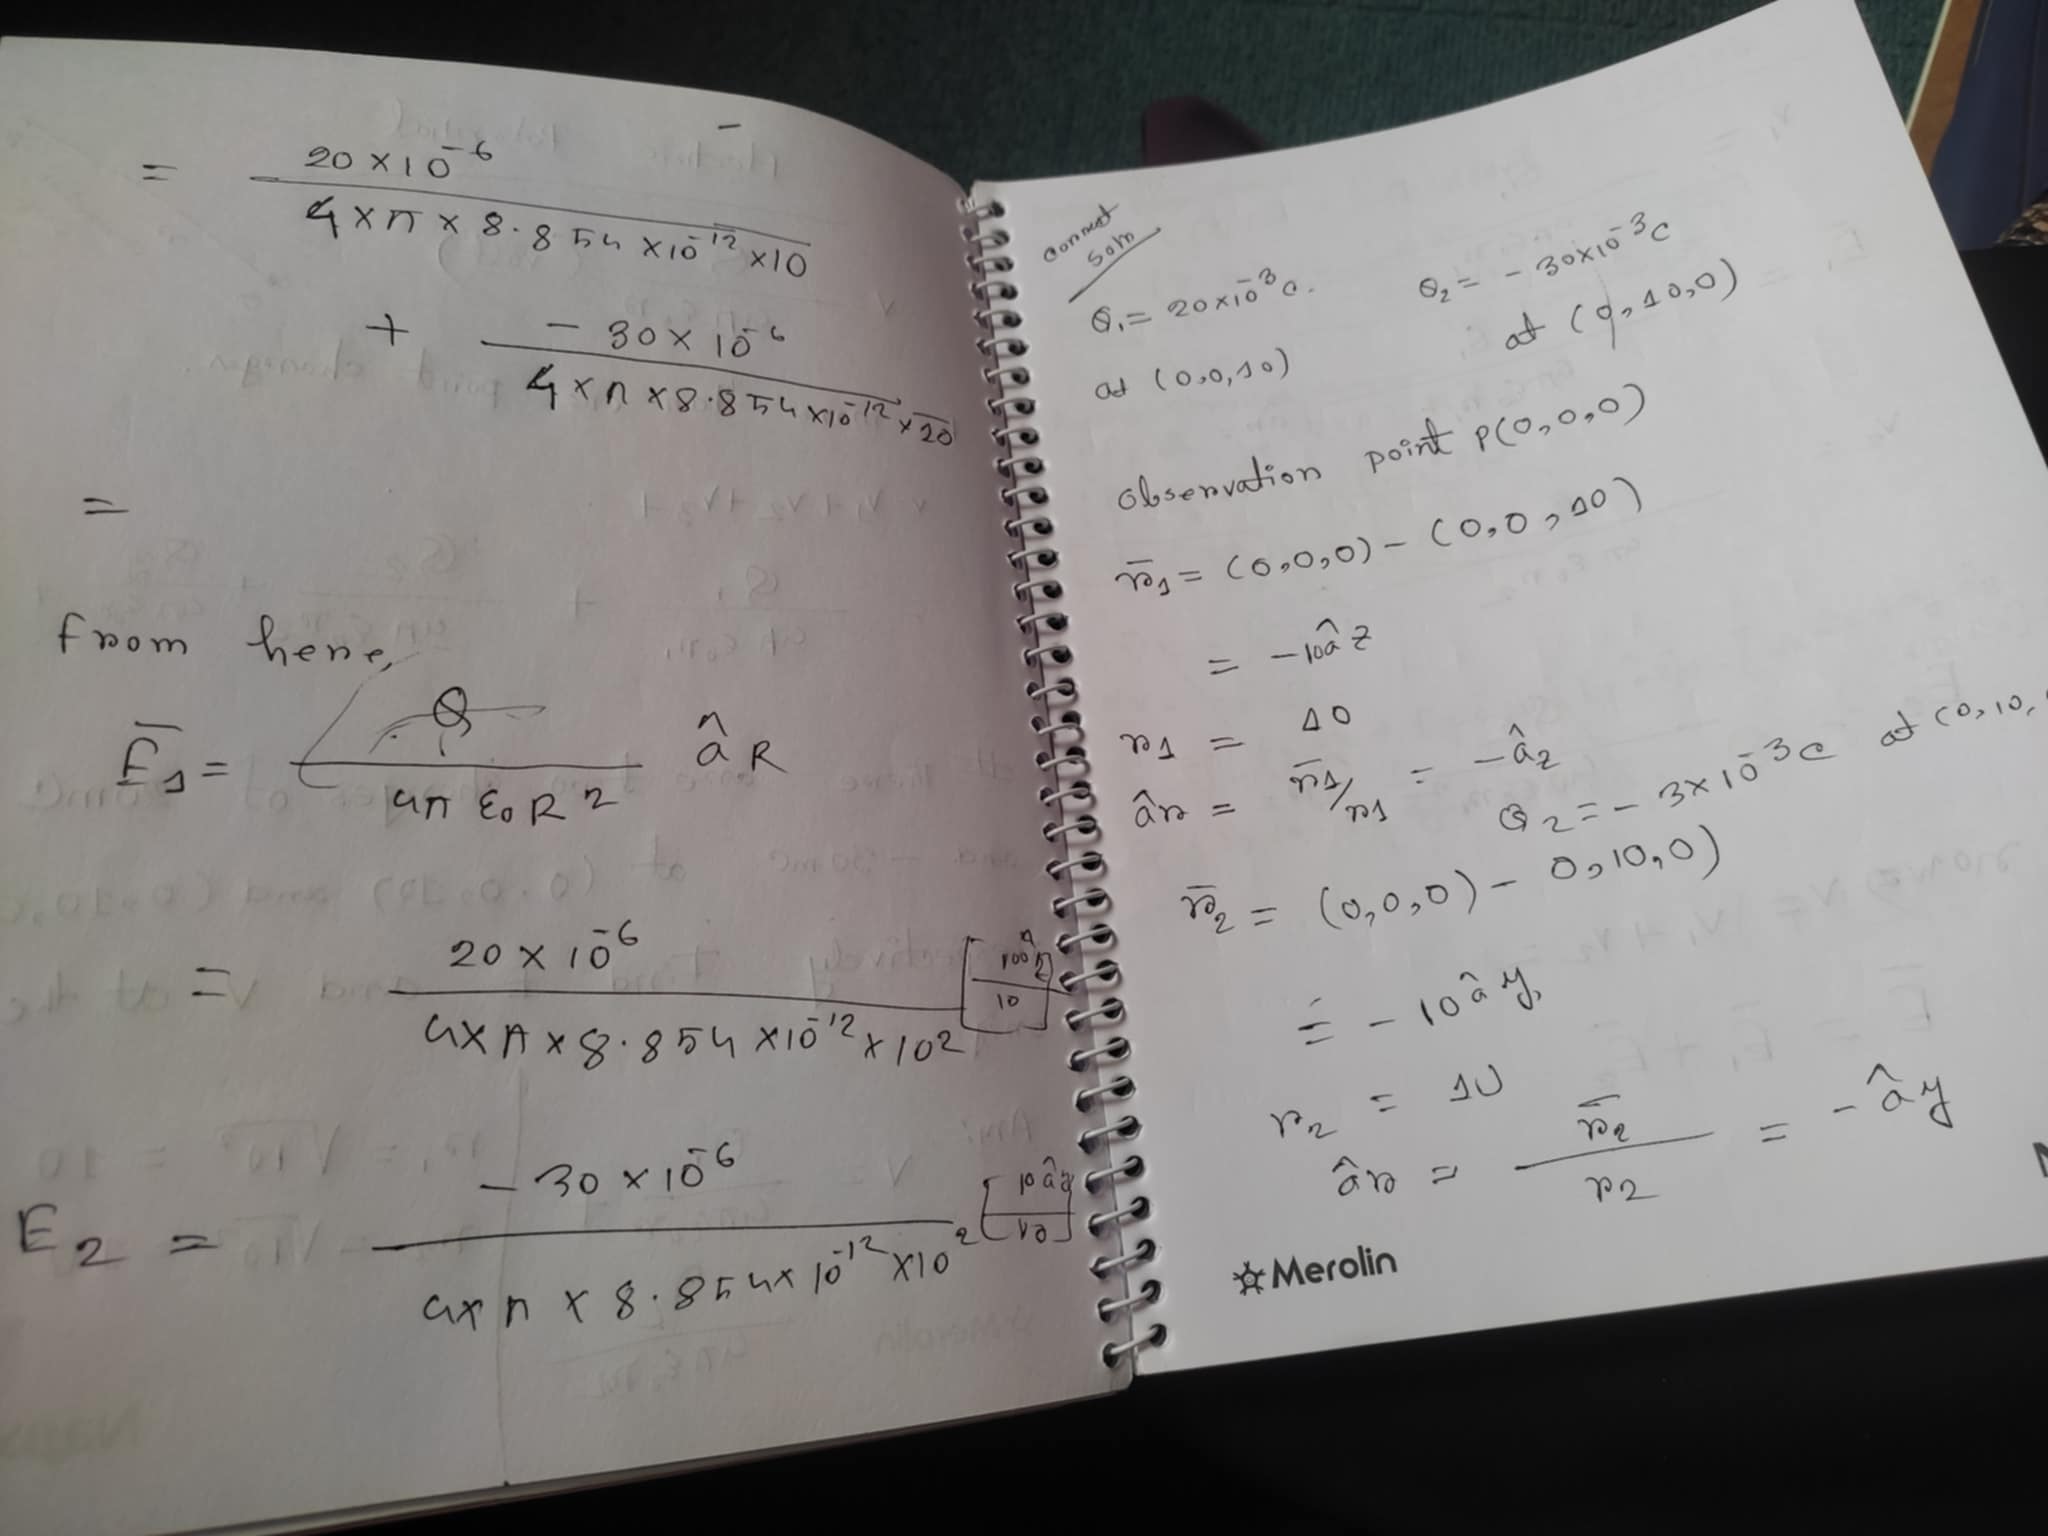 = 20 × 10⁻⁶ / 4 × π × 8.854 × 10⁻¹² × 10
+ − 30 × 10⁻⁶ / 4 × π × 8.854 × 10⁻¹² × 20
=
from here,
E̅₁ = Q / 4π ε₀ R² â R
= 20 × 10⁻⁶ / 4 × π × 8.854 × 10⁻¹² × 10²
E₂ = − 30 × 10⁻⁶ / 4 × π × 8.854 × 10⁻¹² × 10² [10 âz / 10]
correct
soln
Q₁ = 20×10⁻³ C. Q₂ = − 30×10⁻³ C
at (0,0,10) at (0,10,0)
Observation point P(0,0,0)
r̅₁ = (0,0,0) − (0,0,10)
= −10 â z
r₁ = 10
âr = r̅₁/r₁ = − âz
Q₂ = − 3×10⁻³ C at (0,10,
r̅₂ = (0,0,0) − 0,10,0)
= − 10 â y,
r₂ = 10
âr = r̅₂ / r₂ = − â y
Merolin